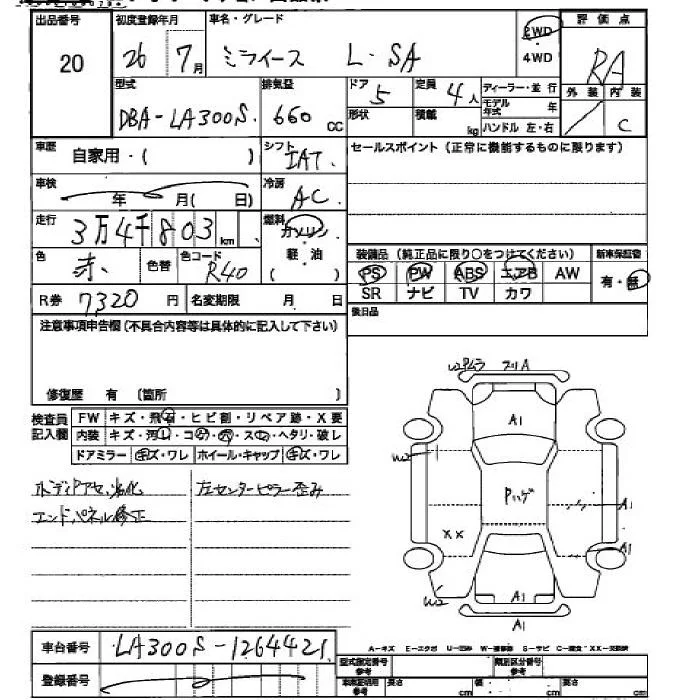 出品番号 初度登録年月 車名・グレード 2WD 評価点
20 26 7月 ミライース L・SA ・4WD RA
型式 排気量 ドア 定員 ディーラー・並行 外装 内装
DBA-LA300S. 660 CC 5 4人 モデル年式 年 / C
形状 積載 kg ハンドル 左・右
車歴 自家用・( ) シフト IAT. セールスポイント(正常に機能するものに限ります)
車検 年 月( 日) 冷房 AC
走行 3万4千803 km 燃料 ガソリン・軽・油 ( )
色 赤. 色替 色コード R40
装備品(純正品に限り○をつけてください) 新車保証書
PS PW ABS エアB AW 有・無
SR ナビ TV カワ
R券 7320円 名変期限 月 日 後日品
注意事項申告欄(不具合内容等は具体的に記入して下さい)
修復歴 有 〔箇所 〕
検査員記入欄 FW キズ・飛石・ヒビ割・リペア跡・X要
内装 キズ・汚レ・コゲ・穴・スレ・ヘタリ・破レ
ドアミラー キズ・ワレ ホイール・キャップ キズ・ワレ
左センターピラー歪み
エンドパネル修正
A1
W2
Pハゲ
A1
XX
A1
W2
A1
A1
車台番号 LA300S-1264421
登録番号
A-キズ E-エクボ U-凹み W-補修跡 S-サビ C-腐食 XX-交換済
型式指定番号 参考 類別区分番号 参考
長さ cm 幅 cm 高さ cm